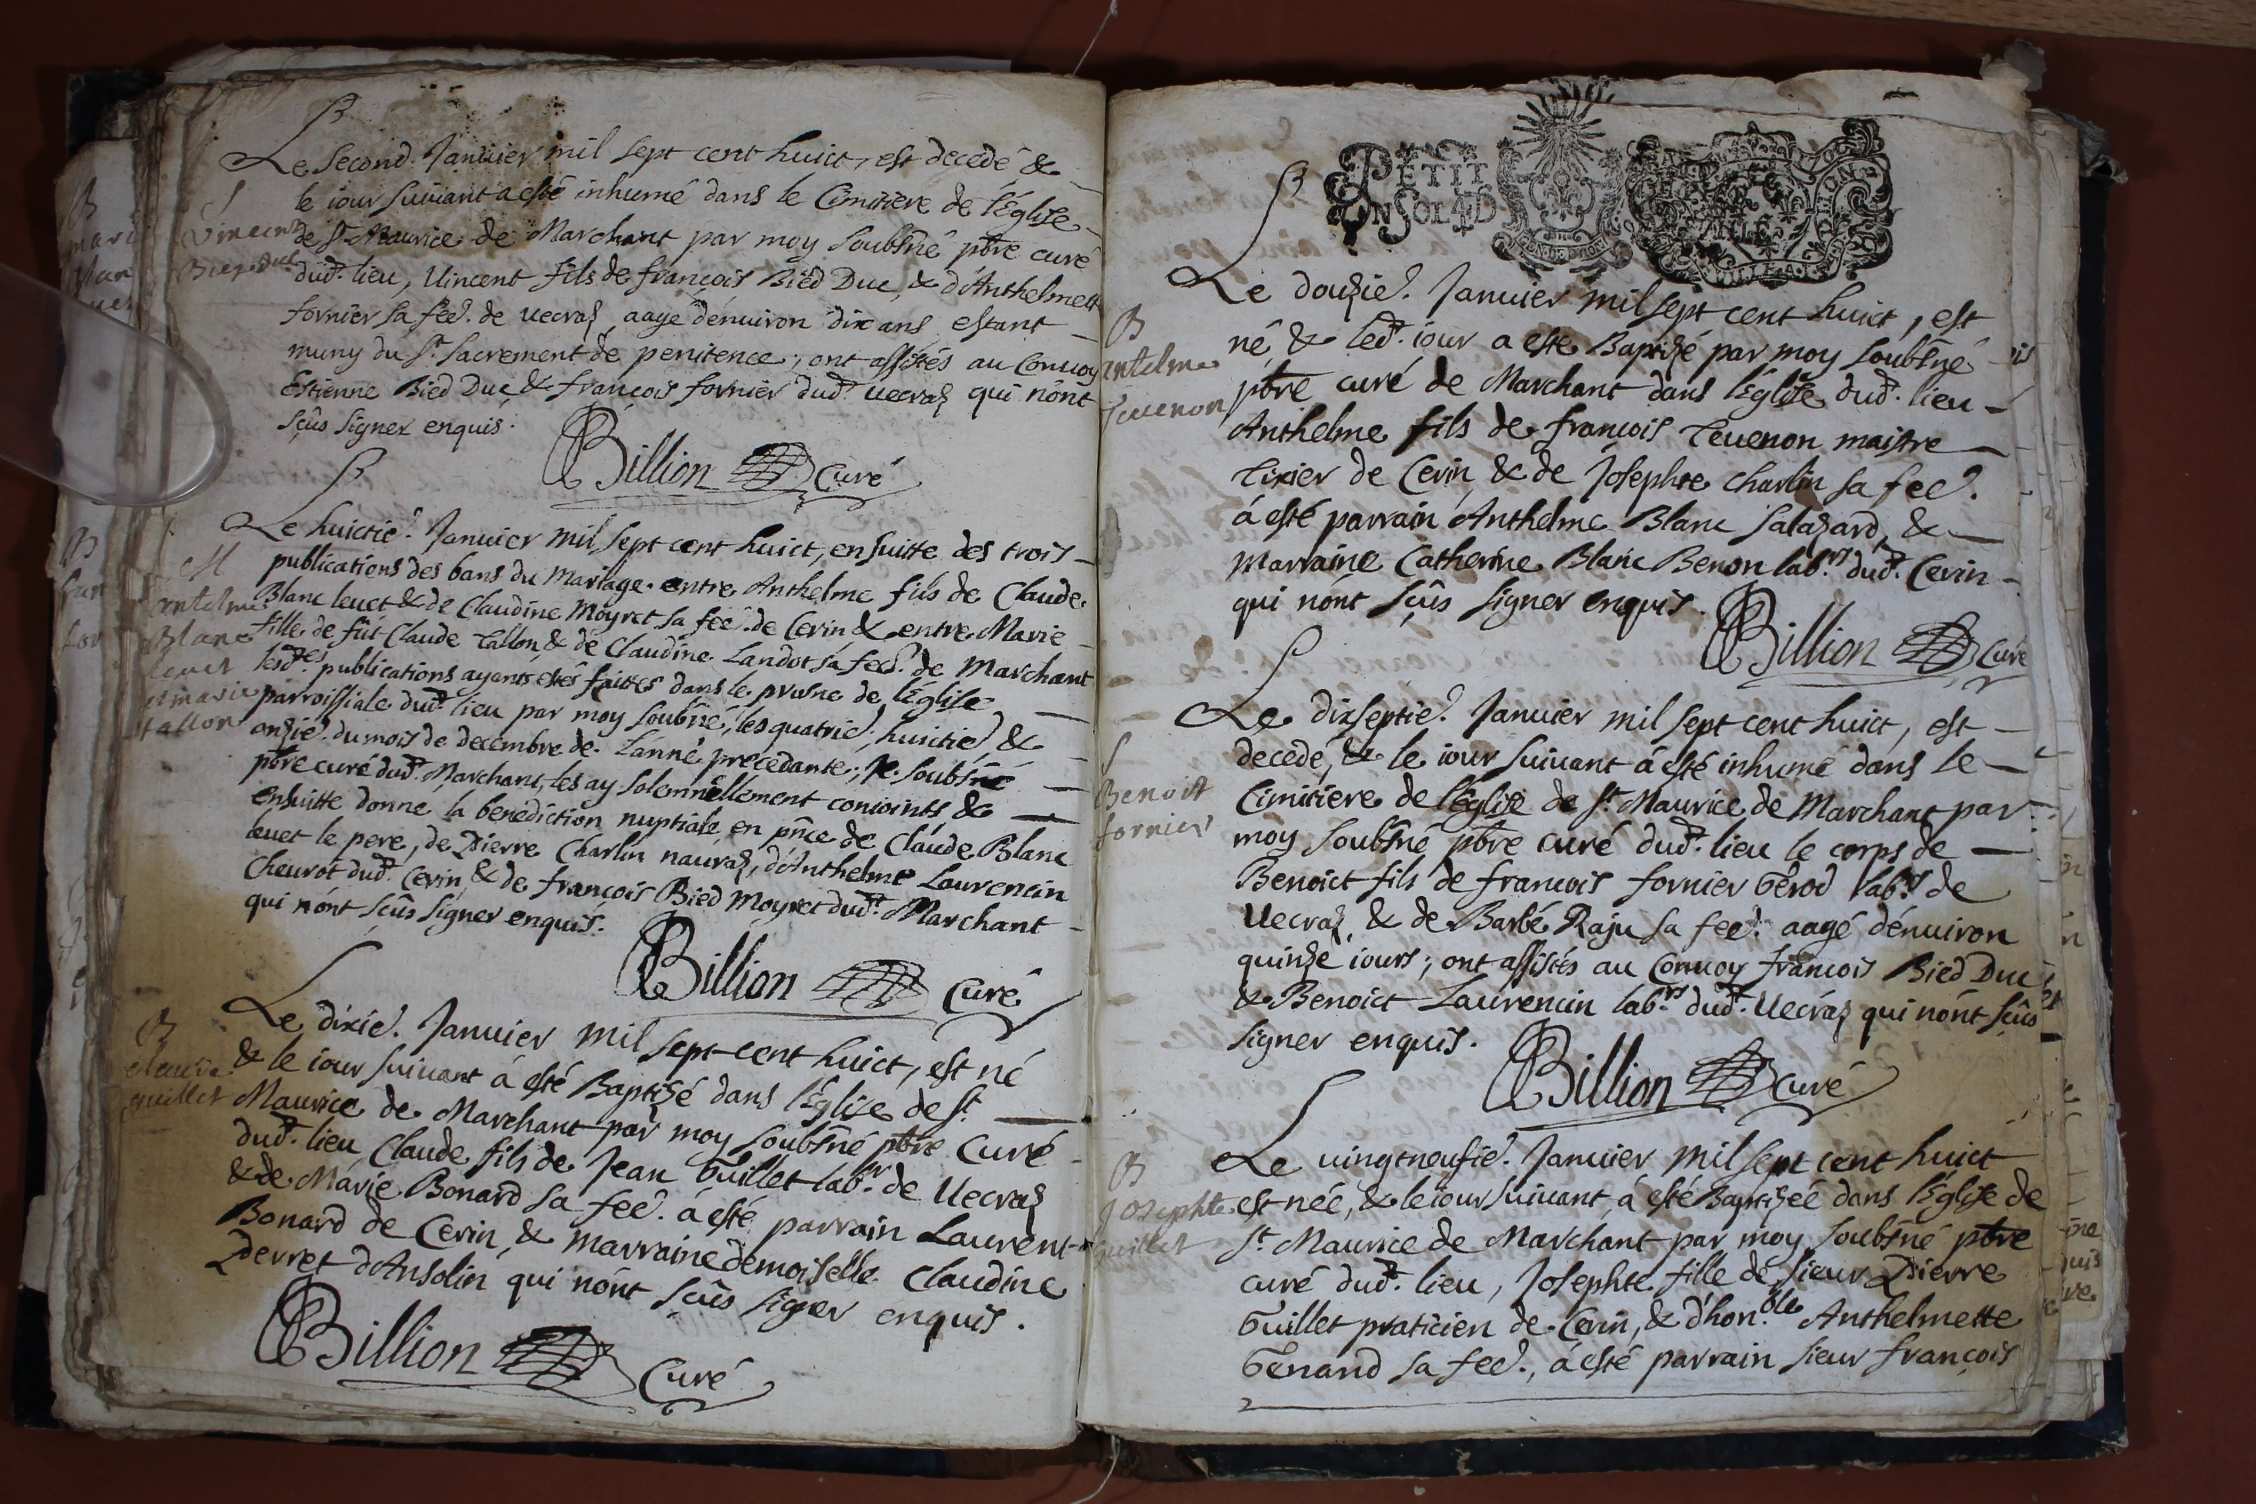 Le second. Januier mil sept cent huict, est decedé &
le iour suiuant a esté inhumé dans le Cimitiere de l'Église
de St. Maurice de Marchant par moy soubsné pbre curé
dud. lieu, Vincent fils de françois Bied Duc, & d'Anthelmette
fornier sa fee. de uecraz, aagé d'enuiron dix ans estant
muny du St. sacrement de penitence, ont assistés au Conuoy
Estienne Bied Duc & francois fornier dud. uecraz qui n'ont
sçûs signer enquis.
Billion Curé
S
Vincent
Bied duc
Le huictie. Januier mil sept cent huict, ensuitte des trois
publications des bans du Mariage entre Anthelme fils de Claude
Blanc leuet & de Claudine Moyret sa fee. de Cerin & entre Marie
fille de fût Claude Tallon & de Claudine Landot sa fee. de Marchant
lesd.es publications ayants estés faittes dans le prosne de l'Église
parroissiale dud. lieu par moy soubsné, les quatrie, huictie, &
onzie. du mois de decembre de l'anné precedante; Je soubsné
pbre curé dud. Marchant, les ay solemnellement conioints &
ensuitte donne la benediction nuptiale en pnce de Claude Blanc
leuet le pere, de Pierre Charlin nauraz, d'Anthelme Laurencin
Cheurot dud. Cerin, & de francois Bied Moyret dud. Marchant
qui n'ont sçûs signer enquis.
Billion Curé
M
antelme
Blanc
leuet
et marie
tallon
Le dixie. Januier mil sept cent huict, est né
& le iour suiuant á esté Baptizé dans l'Église de St.
Maurice de Marchant par moy soubsné pbre Curé
dud. lieu Claude fils de Jean Guillet labr. de Uecraz
& de Marie Bonard sa fee. á esté parrain Laurent
Bonard de Cerin, & marraine demoiselle Claudine
Perret d'Ansolin qui n'ont sçûs signer enquis.
Billion Curé
B
claude
guillet
PETIT
IN SOL 4D
GEN DE DIION
Le douzie. Januier mil sept cent huict, est
né & led. iour a esté Baptizé par moy soubsné
pbre curé de Marchant dans l'Église dud. lieu
Anthelme fils de francois Teuenon maistre
Tixier de Cerin & de Josephte Charlin sa fee.
á esté parrain Anthelme Blanc Salazard, &
marraine Catherine Blanc Benon labrs. dud. Cerin
qui n'ont sçûs signer enquis.
Billion Curé
B
antelme
teuenon
Le dixseptie. Januier mil sept cent huict, est
decedé, & le iour suiuant á esté inhumé dans le
Cimitiere de l'église de St. Maurice de Marchant par
moy soubsné pbre curé dud. lieu le corps de
Benoict fils de francois fornier Gérod labr. de
Uecraz, & de Barbé Raju sa fee. aagé d'enuiron
quinze iours; ont assistés au Conuoy francois Bied Duc
& Benoict Laurencin labrs. dud. Uecraz qui n'ont sçûs
signer enquis.
Billion Curé
S
Benoist
fornier
Le uingtneufie. Januier mil sept cent huict
est née, & le iour suiuant, á esté Baptizée dans l'Église de
St. Maurice de Marchant par moy soubsné pbre
curé dud. lieu, Josephte fille de sieur Pierre
Guillet praticien de Cerin, & d'hon.ble Anthelmette
Genand sa fee., á esté parrain sieur françois
B
Josephte
guillet